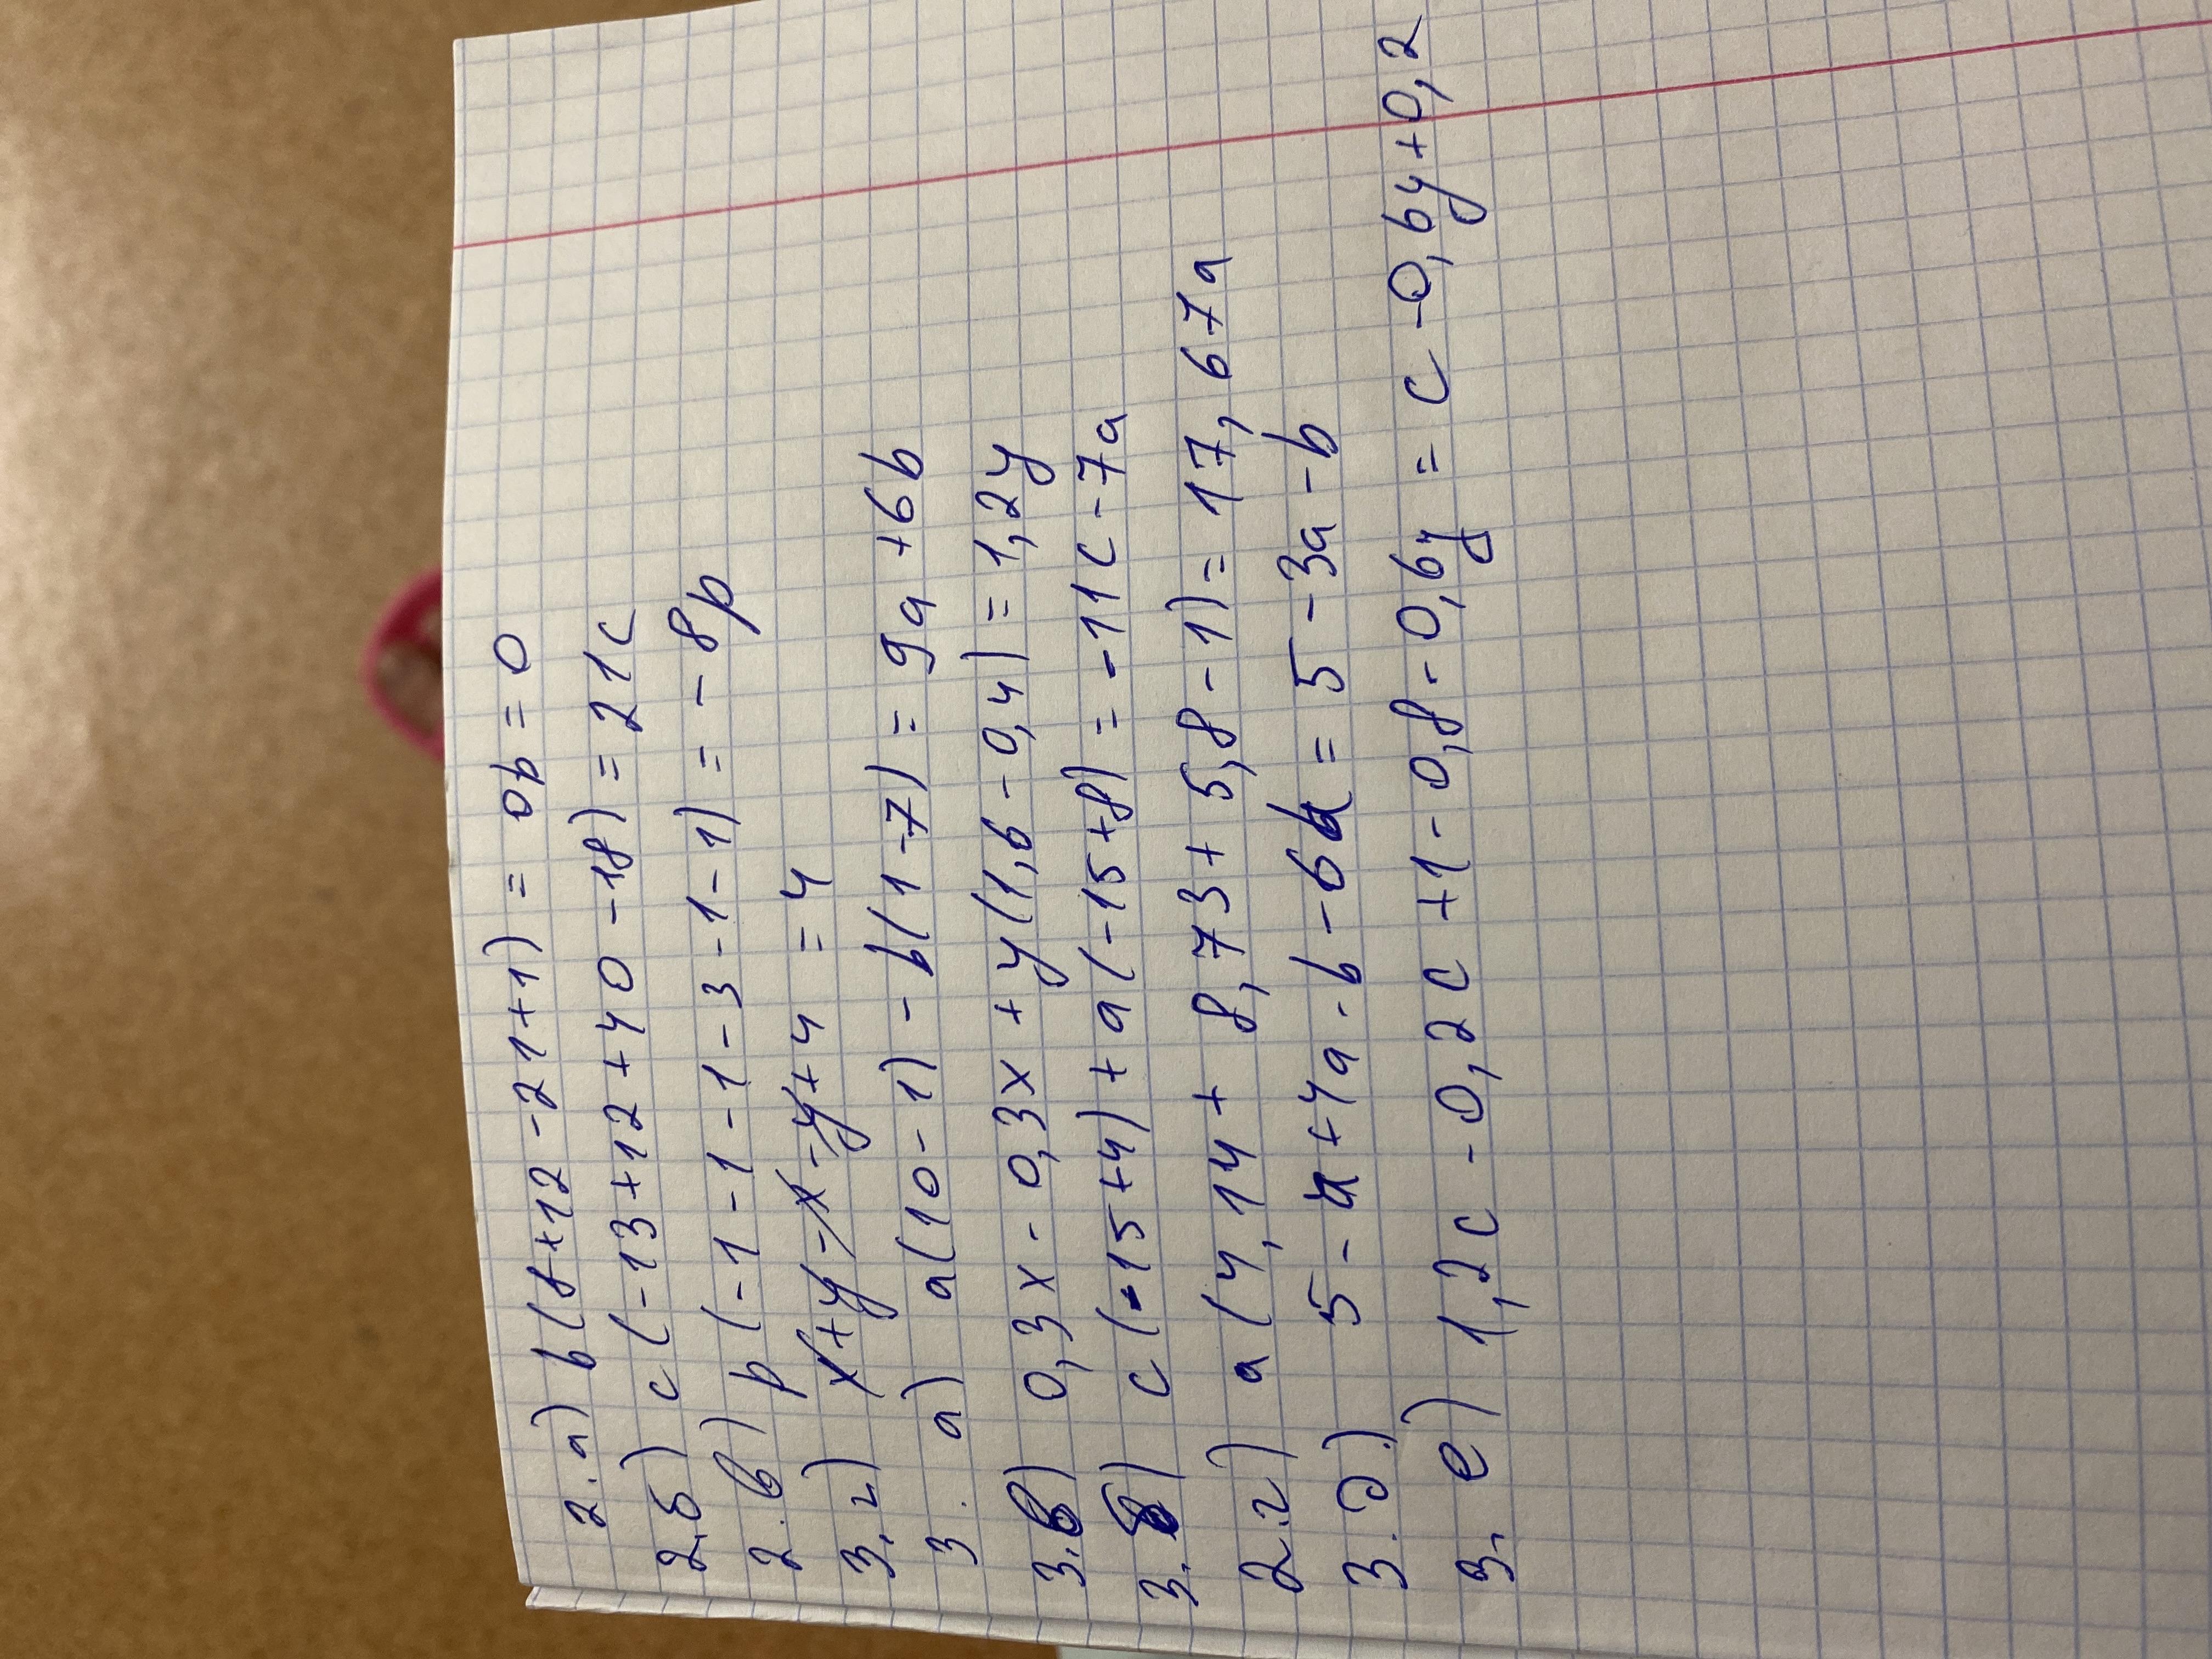 2.а) b(8+12-21+1) = 0b = 0
2.б) c(-13+12+40-18) = 21c
2.в) p(-1-1-1-1-3-1-1) = -8p
3.г) x+y-x-y+4 = 4
3. а) a(10-1) - b(1-7) = 9a+6b
3.в) 0,3x - 0,3x + y(1,6-0,4) = 1,2y
3.б) c(-15+4) + a(-15+8) = -11c-7a
2.г) a(4,14 + 8,73 + 5,8-1) = 17,67a
3.д) 5-a+4a-b-6a = 5-3a-b
3. е) 1,2c-0,2c+1-0,8-0,6y = c-0,6y+0,2